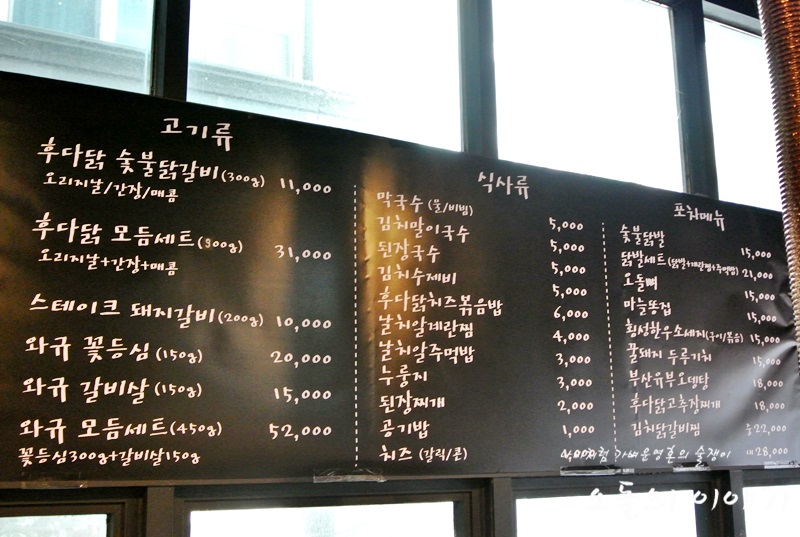 고기류
후다닭 숯불닭갈비(300g) 11,000
오리지날/간장/매콤
후다닭 모듬세트(900g) 31,000
오리지날+간장+매콤
스테이크 돼지갈비(200g) 10,000
와규 꽃등심(150g) 20,000
와규 갈비살(150g) 15,000
와규 모듬세트(450g) 52,000
꽃등심300g+갈비살150g
식사류
막국수(물/비빔) 5,000
김치말이국수 5,000
된장국수 5,000
김치수제비 5,000
후다닭치즈볶음밥 6,000
날치알계란찜 4,000
날치알주먹밥 3,000
누룽지 3,000
된장찌개 2,000
공기밥 1,000
치즈 (갈릭/콘)
포차메뉴
숯불닭발 15,000
닭발세트(닭발+계란찜+주먹밥) 21,000
오돌뼈 15,000
마늘똥집 15,000
횡성한우소세지(구이/볶음) 15,000
꿀돼지 두루치기 15,000
부산유부오뎅탕 18,000
후다닭고추장찌개 18,000
김치닭갈비찜 중22,000
대28,000
영혼의 술쟁이
이야기